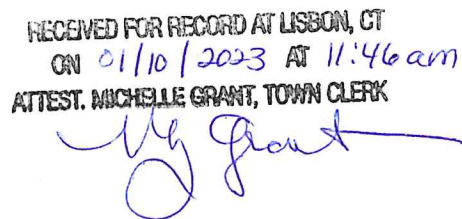 RECEIVED FOR RECORD AT LISBON, CT
ON 01/10/2023 AT 11:46 am
ATTEST. MICHELLE GRANT, TOWN CLERK
Grant